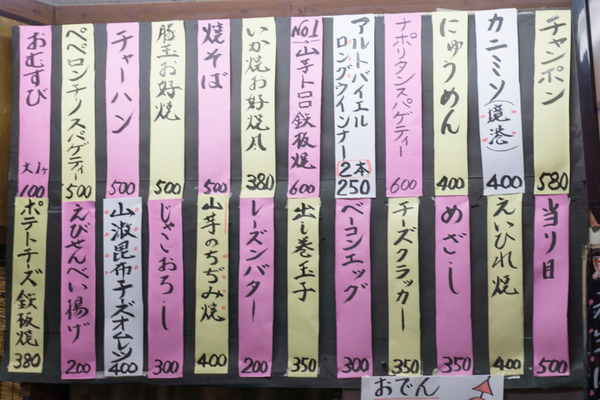 チャンポン
580
カニミソ(境港)
400
にゅうめん
400
ナポリタンスパゲティー
600
アルトバイエルン
ロングウインナー
2本
250
No.1
山芋トロロ鉄板焼
600
いか焼お好焼風
380
焼そば
500
豚玉お好焼
500
チャーハン
500
ペペロンチーノスパゲティー
500
おむすび
大1ヶ
100
当り目
500
えいひれ焼
400
めざし
350
チーズクラッカー
350
ベーコンエッグ
300
出し巻玉子
350
レーズンバター
200
山芋のちぢみ焼
400
じゃこおろし
300
山波昆布チーズオムレツ
400
えびせんべい揚げ
200
ポテトチーズ鉄板焼
380
おでん